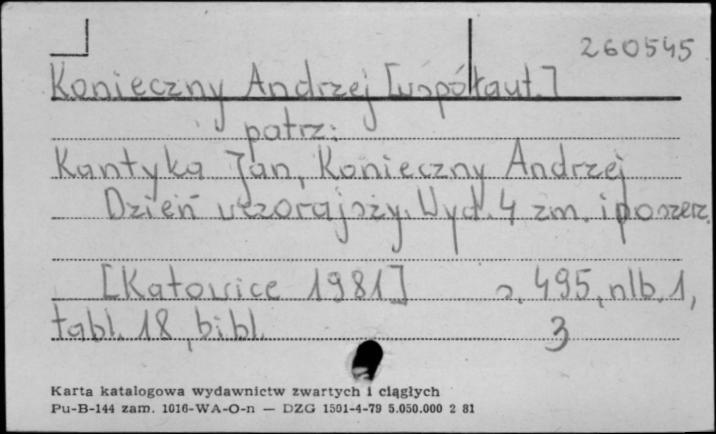 260545
Konieczny Andrzej [współaut.]
patrz:
Kantyka Jan, Konieczny Andrzej
Dzień wczorajszy. Wyd. 4 zm. i poszerz.
[Katowice 1981] s. 495, nlb. 1,
tabl. 18, bibl. 3
Karta katalogowa wydawnictw zwartych i ciągłych
Pu-B-144 zam. 1016-WA-O-n — DZG 1501-4-79 5.050.000 2 81